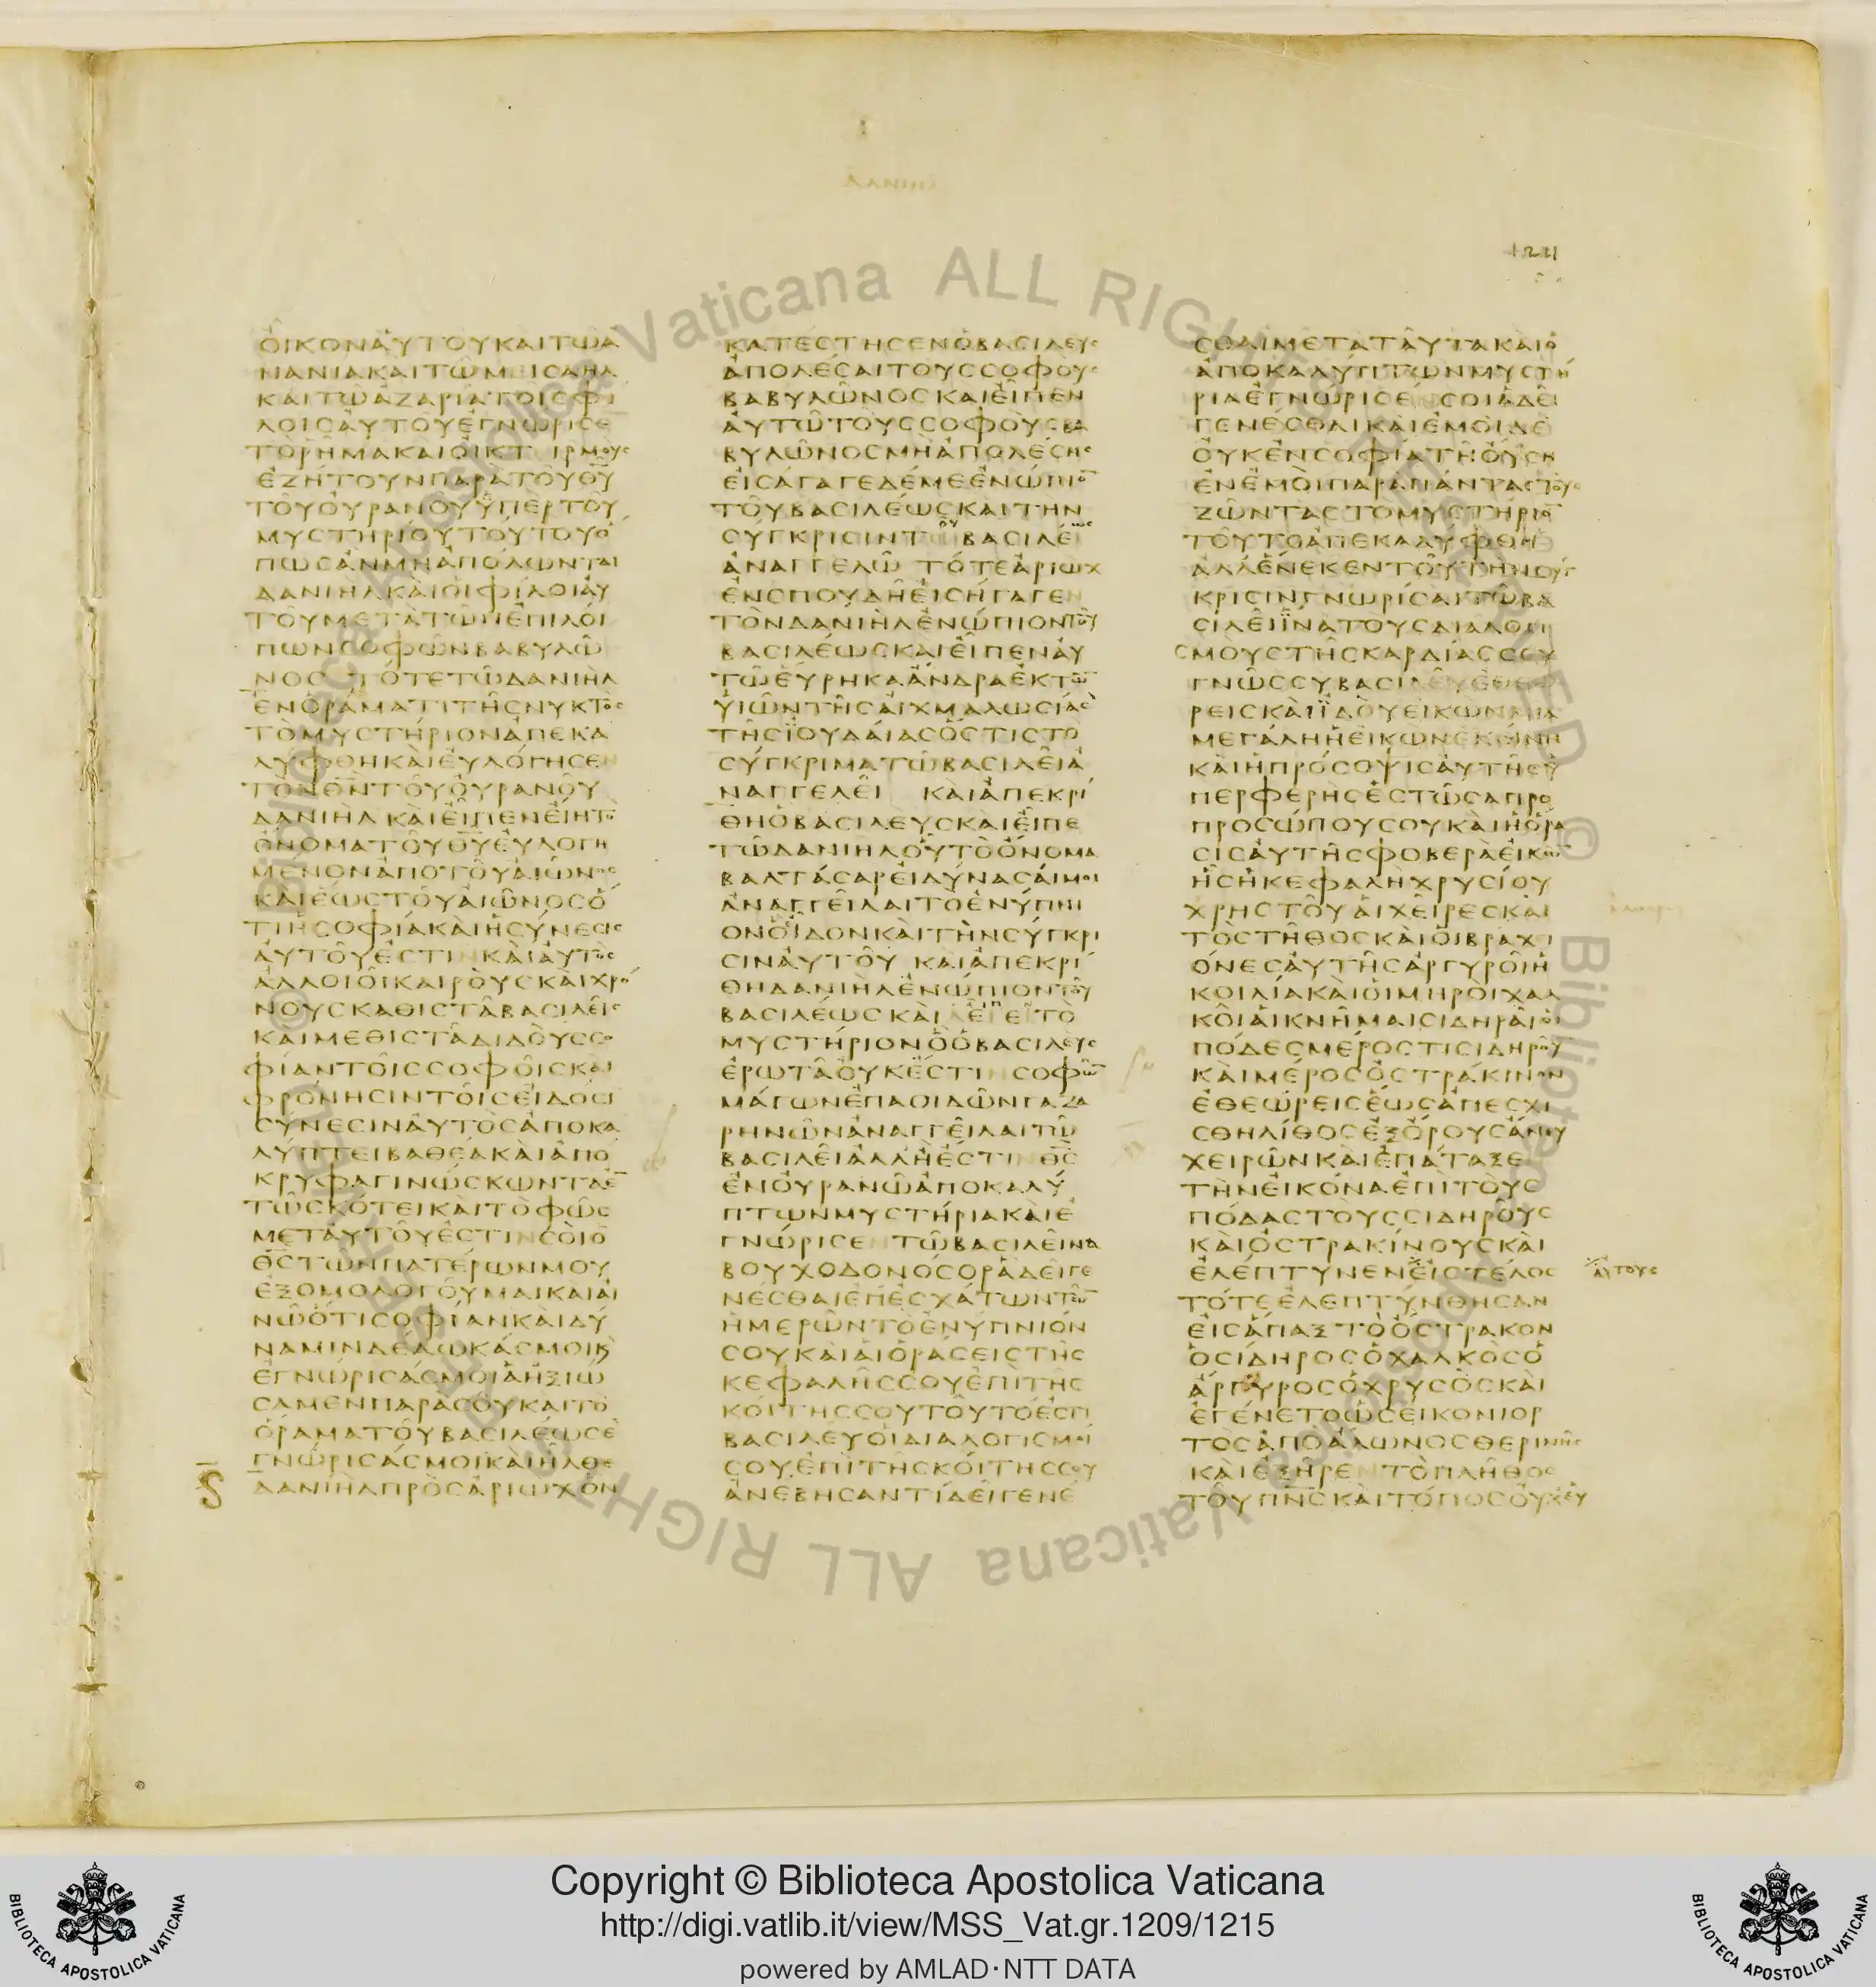 ΟΙΚΟΝΑΥΤΟΥΚΑΙΤΩΑ
ΝΑΝΙΑΚΑΙΤΩΜΙΣΑΗΛ
ΚΑΙΤΩΑΖΑΡΙΑΤΟΙΣΦΙ
ΛΟΙΣΑΥΤΟΥΕΓΝΩΡΙΣΕ
ΤΟΡΗΜΑΚΑΙΟΙΚΤΙΡΜΟΥΣ
ΕΖΗΤΟΥΝΠΑΡΑΤΟΥΘΥ
ΤΟΥΟΥΡΑΝΟΥΥΠΕΡΤΟΥ
ΜΥΣΤΗΡΙΟΥΤΟΥΤΟΥΟ
ΠΩΣΑΝΜΗΑΠΟΛΩΝΤΑΙ
ΔΑΝΙΗΛΚΑΙΟΙΦΙΛΟΙΑΥ
ΤΟΥΜΕΤΑΤΩΝΕΠΙΛΟΙ
ΠΩΝΣΟΦΩΝΒΑΒΥΛΩ
ΝΟΣ ΤΟΤΕΤΩΔΑΝΙΗΛ
ΕΝΟΡΑΜΑΤΙΤΗΣΝΥΚΤΟΣ
ΤΟΜΥΣΤΗΡΙΟΝΑΠΕΚΑ
ΛΥΦΘΗΚΑΙΕΥΛΟΓΗΣΕΝ
ΤΟΝΘΝΤΟΥΟΥΡΑΝΟΥ
ΔΑΝΙΗΛΚΑΙΕΙΠΕΝΕΙΗΤΟ
ΟΝΟΜΑΤΟΥΘΥΕΥΛΟΓΗ
ΜΕΝΟΝΑΠΟΤΟΥΑΙΩΝΟΣ
ΚΑΙΕΩΣΤΟΥΑΙΩΝΟΣΟ
ΤΙΗΣΟΦΙΑΚΑΙΗΣΥΝΕΣΙΣ
ΑΥΤΟΥΕΣΤΙΝΚΑΙΑΥΤΟΣ
ΑΛΛΟΙΟΙΚΑΙΡΟΥΣΚΑΙΧΡΟ
ΝΟΥΣΚΑΘΙΣΤΑΒΑΣΙΛΕΙΣ
ΚΑΙΜΕΘΙΣΤΑΔΙΔΟΥΣΣΟ
ΦΙΑΝΤΟΙΣΣΟΦΟΙΣΚΑΙ
ΦΡΟΝΗΣΙΝΤΟΙΣΕΙΔΟΣΙ
ΣΥΝΕΣΙΝΑΥΤΟΣΑΠΟΚΑ
ΛΥΠΤΕΙΒΑΘΕΑΚΑΙΑΠΟ
ΚΡΥΦΑΓΙΝΩΣΚΩΝΤΑΕΝ
ΤΩΣΚΟΤΕΙΚΑΙΤΟΦΩΣ
ΜΕΤΑΥΤΟΥΕΣΤΙΝΣΟΙΟ
ΘΣΤΩΝΠΑΤΕΡΩΝΜΟΥ
ΕΞΟΜΟΛΟΓΟΥΜΑΙΚΑΙΑΙ
ΝΩΟΤΙΣΟΦΙΑΝΚΑΙΔΥ
ΝΑΜΙΝΔΕΔΩΚΑΣΜΟΙΚ
ΕΓΝΩΡΙΣΑΣΜΟΙΑΗΞΙΩ
ΣΑΜΕΝΠΑΡΑΣΟΥΚΑΙΤΟ
ΟΡΑΜΑΤΟΥΒΑΣΙΛΕΩΣΕ
ΓΝΩΡΙΣΑΣΜΟΙΚΑΙΗΛΘΕ
ΔΑΝΙΗΛΠΡΟΣΑΡΙΩΧΟΝ
ΚΑΤΕΣΤΗΣΕΝΟΒΑΣΙΛΕΥΣ
ΑΠΟΛΕΣΑΙΤΟΥΣΣΟΦΟΥΣ
ΒΑΒΥΛΩΝΟΣΚΑΙΕΙΠΕΝ
ΑΥΤΩΤΟΥΣΣΟΦΟΥΣΒΑ
ΒΥΛΩΝΟΣΜΗΑΠΟΛΕΣΗΣ
ΕΙΣΑΓΑΓΕΔΕΜΕΕΝΩΠΙΟΝ
ΤΟΥΒΑΣΙΛΕΩΣΚΑΙΤΗΝ
ΣΥΓΚΡΙΣΙΝΤΟΥΒΑΣΙΛΕΩΣ
ΑΝΑΓΓΕΛΩ ΤΟΤΕΑΡΙΩΧ
ΕΝΣΠΟΥΔΗΕΙΣΗΓΑΓΕΝ
ΤΟΝΔΑΝΙΗΛΕΝΩΠΙΟΝΤΟΥ
ΒΑΣΙΛΕΩΣΚΑΙΕΙΠΕΝΑΥ
ΤΩΕΥΡΗΚΑΑΝΔΡΑΕΚΤΩΝ
ΥΙΩΝΤΗΣΑΙΧΜΑΛΩΣΙΑΣ
ΤΗΣΙΟΥΔΑΙΑΣΟΣΤΙΣΤΟ
ΣΥΓΚΡΙΜΑΤΩΒΑΣΙΛΕΙΑ
ΝΑΓΓΕΛΕΙ ΚΑΙΑΠΕΚΡΙ
ΘΗΟΒΑΣΙΛΕΥΣΚΑΙΕΙΠΕ
ΤΩΔΑΝΙΗΛΟΥΤΟΟΝΟΜΑ
ΒΑΛΤΑΣΑΡΕΙΔΥΝΑΣΑΙΜΟΙ
ΑΝΑΓΓΕΙΛΑΙΤΟΕΝΥΠΝΙ
ΟΝΟΙΔΟΝΚΑΙΤΗΝΣΥΓΚΡΙ
ΣΙΝΑΥΤΟΥ ΚΑΙΑΠΕΚΡΙ
ΘΗΔΑΝΙΗΛΕΝΩΠΙΟΝΤΟΥ
ΒΑΣΙΛΕΩΣΚΑΙ ΤΟ
ΜΥΣΤΗΡΙΟΝΟΟΒΑΣΙΛΕΥΣ
ΕΡΩΤΑΟΥΚΕΣΤΙΝΣΟΦΩΝ
ΜΑΓΩΝΕΠΑΟΙΔΩΝΓΑΖΑ
ΡΗΝΩΝΑΝΑΓΓΕΙΛΑΙΤΩ
ΒΑΣΙΛΕΙΑΛΛΗΕΣΤΙΝΘΣ
ΕΝΟΥΡΑΝΩΑΠΟΚΑΛΥ
ΠΤΩΝΜΥΣΤΗΡΙΑΚΑΙΕ
ΓΝΩΡΙΣΕΝΤΩΒΑΣΙΛΕΙΝΑ
ΒΟΥΧΟΔΟΝΟΣΟΡΑΔΕΙΓΕ
ΝΕΣΘΑΙΕΠΕΣΧΑΤΩΝΤΩΝ
ΗΜΕΡΩΝΤΟΕΝΥΠΝΙΟΝ
ΣΟΥΚΑΙΑΙΟΡΑΣΕΙΣΤΗΣ
ΚΕΦΑΛΗΣΣΟΥΕΠΙΤΗΣ
ΚΟΙΤΗΣΣΟΥΤΟΥΤΟΕΣΤΙ
ΒΑΣΙΛΕΥΟΙΔΙΑΛΟΓΙΣΜΟΙ
ΣΟΥΕΠΙΤΗΣΚΟΙΤΗΣΣΟΥ
ΑΝΕΒΗΣΑΝΤΙΔΕΙΓΕΝΕ
ΣΘΑΙΜΕΤΑΤΑΥΤΑΚΑΙΟ
ΑΠΟΚΑΛΥΠΤΩΝΜΥΣΤΗ
ΡΙΑΕΓΝΩΡΙΣΕΝΣΟΙΑΔΕΙ
ΓΕΝΕΣΘΑΙΚΑΙΕΜΟΙΔΕ
ΟΥΚΕΝΣΟΦΙΑΤΗΟΥΣΗ
ΕΝΕΜΟΙΠΑΡΑΠΑΝΤΑΣΤΟΥΣ
ΖΩΝΤΑΣΤΟΜΥΣΤΗΡΙΟΝ
ΤΟΥΤΟΑΠΕΚΑΛΥΦΘΗ
ΑΛΛΕΝΕΚΕΝΤΟΥΤΗΝΣΥΓ
ΚΡΙΣΙΝΓΝΩΡΙΣΑΙΤΩΒΑ
ΣΙΛΕΙΙΝΑΤΟΥΣΔΙΑΛΟΓΙ
ΣΜΟΥΣΤΗΣΚΑΡΔΙΑΣΣΟΥ
ΓΝΩΣΣΥΒΑΣΙΛΕΥΕΘΕΩ
ΡΕΙΣΚΑΙΙΔΟΥΕΙΚΩΝΜΙΑ
ΜΕΓΑΛΗΗΕΙΚΩΝΕΚΕΙΝΗ
ΚΑΙΗΠΡΟΣΟΨΙΣΑΥΤΗΣΥ
ΠΕΡΦΕΡΗΣΕΣΤΩΣΑΠΡΟ
ΠΡΟΣΩΠΟΥΣΟΥΚΑΙΗΟΡΑ
ΣΙΣΑΥΤΗΣΦΟΒΕΡΑΕΙΚΩΝ
ΗΣΗΚΕΦΑΛΗΧΡΥΣΙΟΥ
ΧΡΗΣΤΟΥΑΙΧΕΙΡΕΣΚΑΙ
ΤΟΣΤΗΘΟΣΚΑΙΟΙΒΡΑΧΙ
ΟΝΕΣΑΥΤΗΣΑΡΓΥΡΟΙΗ
ΚΟΙΛΙΑΚΑΙΟΙΜΗΡΟΙΧΑΛ
ΚΟΙΑΙΚΝΗΜΑΙΣΙΔΗΡΑΙΟΙ
ΠΟΔΕΣΜΕΡΟΣΤΙΣΙΔΗΡΟΥ
ΚΑΙΜΕΡΟΣΟΣΤΡΑΚΙΝΟΝ
ΕΘΕΩΡΕΙΣΕΩΣΑΠΕΣΧΙ
ΣΘΗΛΙΘΟΣΕΞΟΡΟΥΣΑΝΕΥ
ΧΕΙΡΩΝΚΑΙΕΠΑΤΑΞΕ
ΤΗΝΕΙΚΟΝΑΕΠΙΤΟΥΣ
ΠΟΔΑΣΤΟΥΣΣΙΔΗΡΟΥΣ
ΚΑΙΟΣΤΡΑΚΙΝΟΥΣΚΑΙ
ΕΛΕΠΤΥΝΕΝΕΙΣΤΕΛΟΣ ΑΥΤΟΥΣ
ΤΟΤΕΕΛΕΠΤΥΝΘΗΣΑΝ
ΕΙΣΑΠΑΞΤΟΟΣΤΡΑΚΟΝ
ΟΣΙΔΗΡΟΣΟΧΑΛΚΟΣΟ
ΑΡΓΥΡΟΣΟΧΡΥΣΟΣΚΑΙ
ΕΓΕΝΕΤΟΩΣΕΙΚΟΝΙΟΡ
ΤΟΣΑΠΟΑΛΩΝΟΣΘΕΡΙΝΗΣ
ΚΑΙΕΞΗΡΕΝΤΟΠΛΗΘΟΣ
ΤΟΥΠΝΣΚΑΙΤΟΠΟΣΟΥΧΕΥ
Copyright © Biblioteca Apostolica Vaticana
http://digi.vatlib.it/view/MSS_Vat.gr.1209/1215
powered by AMLAD·NTT DATA
BIBLIOTECA APOSTOLICA VATICANA
BIBLIOTECA APOSTOLICA VATICANA